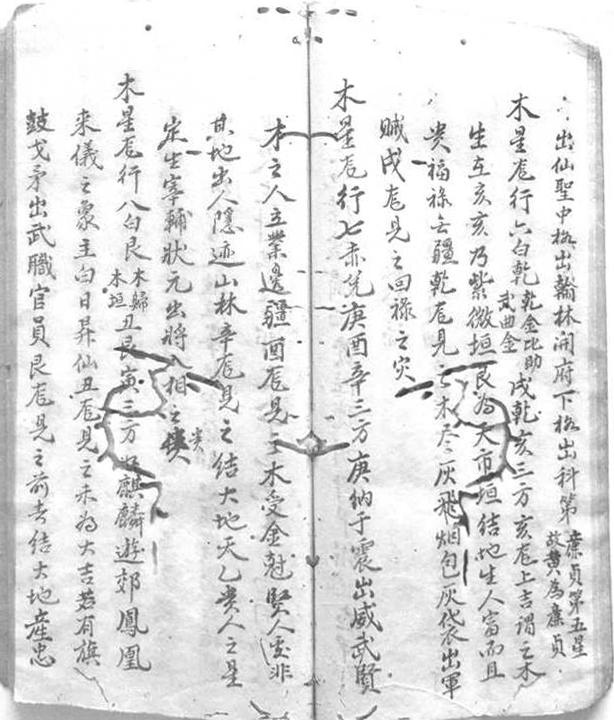 出仙聖中格出翰林開府下格出科第廉貞第五星故黄為廉貞
木星尨行六白乾乾金比助武曲金戌乾亥三方亥尨上吉謂之木
生在亥亥乃紫微垣艮為天市垣結地生人富而且
貴福祿無疆乾尨見之木尽灰飛烟包灰袋出軍
賊戌尨見之回祿之灾
木星尨行七赤兌庚酉辛三方庚納于震出威武賢
才之人立業邊疆酉尨見之木受金尅賢人非
其地出人隱迹山林辛尨見之結大地天乙貴人之星
定生宰輔狀元出將入相之貴
木星尨行八白艮木歸木垣丑艮寅三方麒麟遊郊鳳凰
来儀之象主白日昇仙丑尨見之未為大吉若有旗
鼓戈矛出武職官員艮尨見之前去結大地產忠